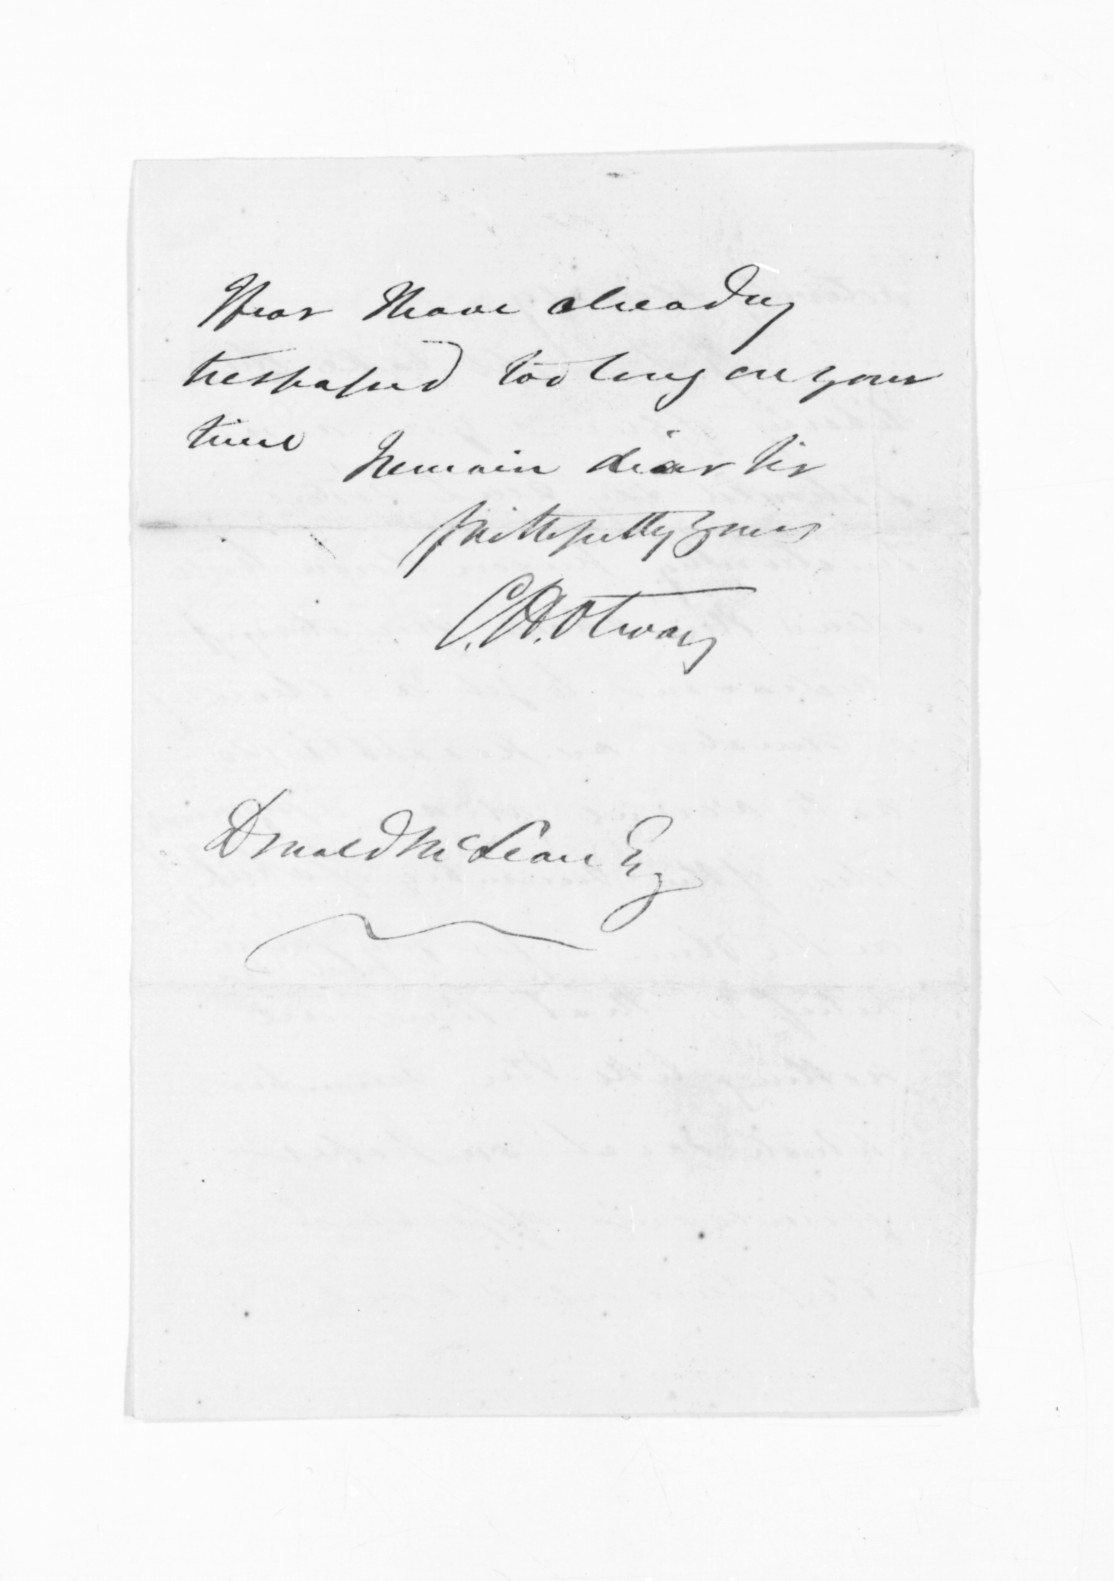 I fear I have already
trespassed too long on your
time
I remain dear Sir
faithfully yours
C. H. Otway
Donald McLean Esq